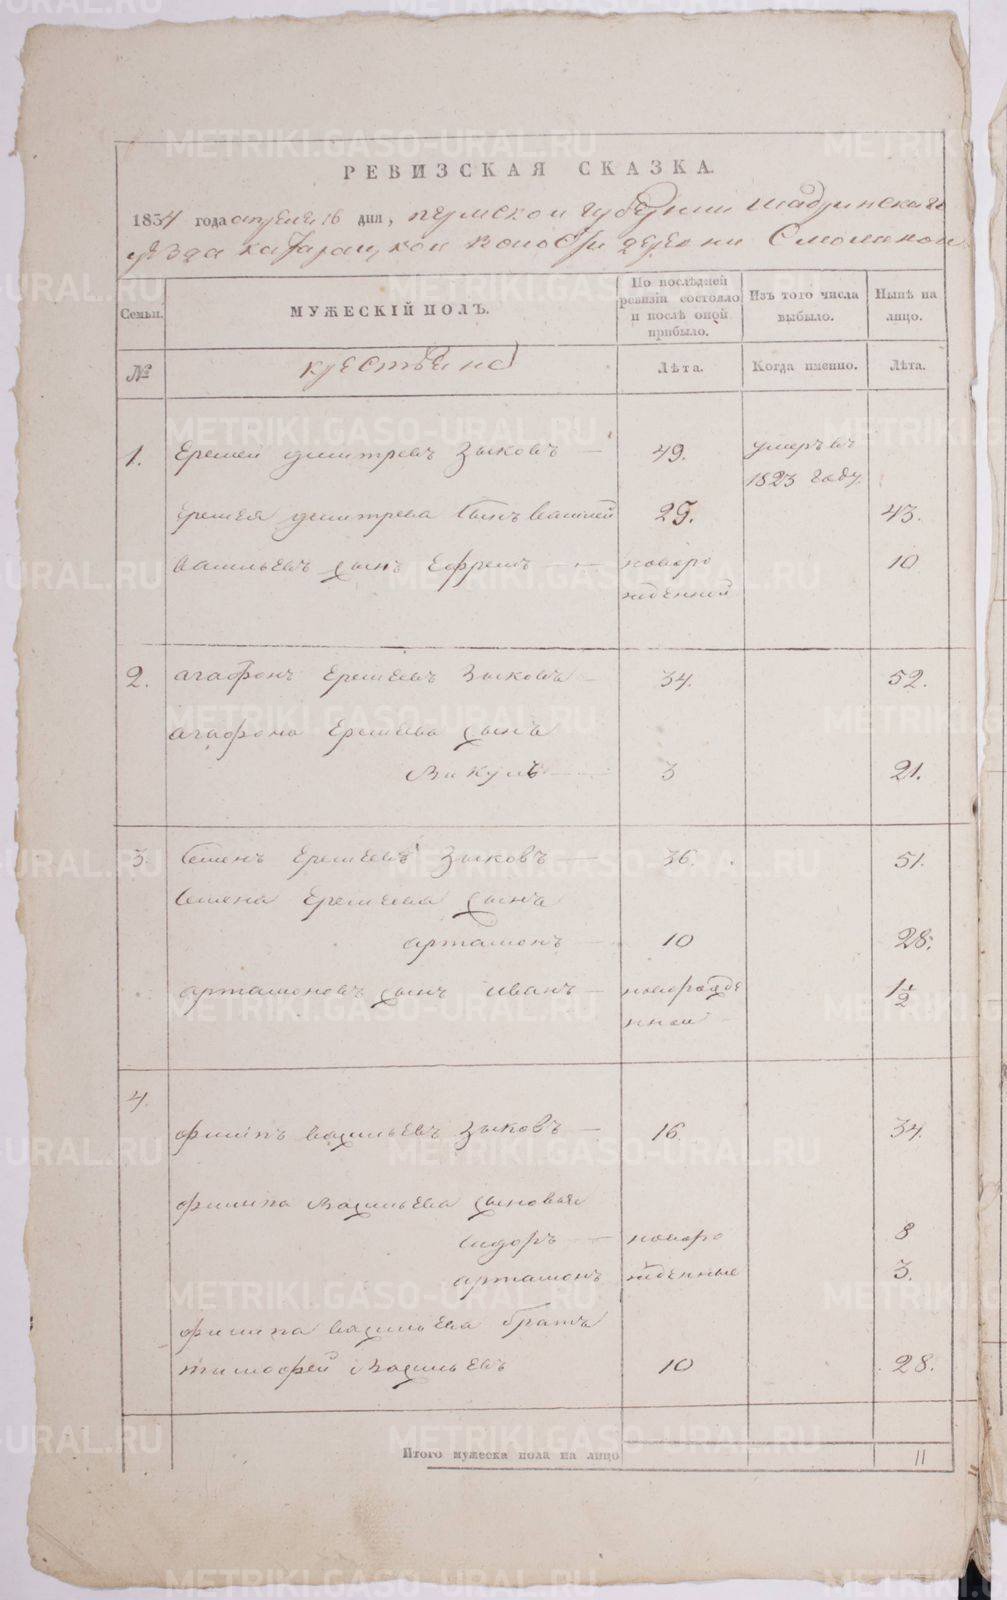 РЕВИЗСКАЯ СКАЗКА.
1834 года апреля 16 дня, пермской губернии шадринскаго
уѣзда катарацкой волости деревни Смолиной
Семьи.
МУЖЕСКІЙ ПОЛЪ.
По послѣдней ревизіи состояло и послѣ оной прибыло.
Изъ того числа выбыло.
Нынѣ на лицо.
№
крестьяне
Лѣта.
Когда именно.
Лѣта.
1. Еремей дмитревъ Зыковъ — 49. умеръ въ
1823 году
еремея дмитрева сынъ василей 25. 43.
васильевъ сынъ Ефремъ — новоро 10
жденной
2. агафонъ Еремеевъ Зыковъ — 34. 52.
агафона Еремеева сынъ
Викулъ 3 21.
3. Семенъ Еремеевъ Зыковъ — 36. 51.
Семена Еремеева сынъ
артамонъ 10 28.
артамоновъ сынъ иванъ — новорожде 1 1/2
нной
4.
филипъ васильевъ Зыковъ — 16. 34.
филипа васильева сыновья
сидоръ — новоро 8
артамонъ жденные 3.
филипа васильева братъ
тимофей васильевъ 10 28.
Итого мужеска пола на лицо 11
METRIKI.GASO-URAL.RU